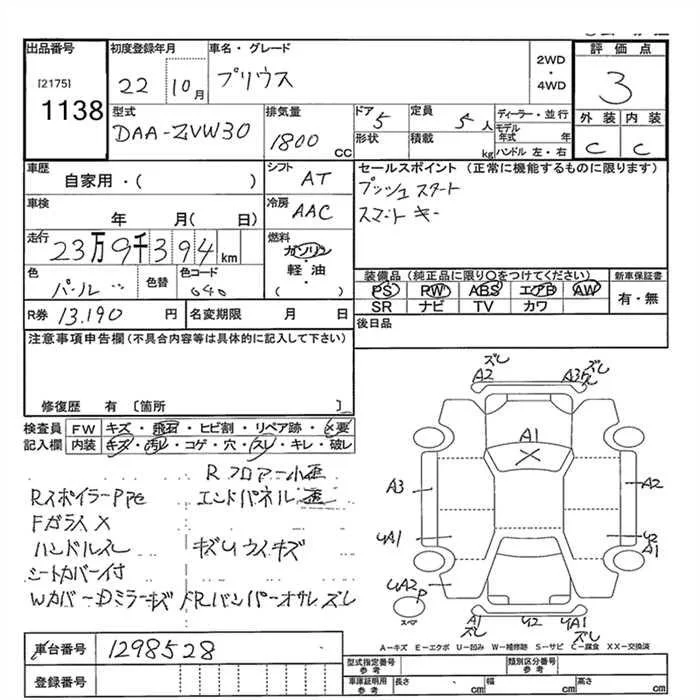 出品番号 初度登録年月 車名・グレード 2WD・4WD 評価点
[2175]
1138
22 10月 プリウス 3
型式 排気量 ドア 定員 ディーラー・並行 外装 内装
DAA-ZVW30 1800 CC 5 5人 モデル年式 年 C C
形状 積載 kg ハンドル 左・右
車歴 シフト セールスポイント (正常に機能するものに限ります)
自家用・( ) AT プッシュスタート
車検 冷房 スマートキー
年 月( 日) AAC
走行 燃料
23万9千394km ガソリン・軽油・( )
色 色替 色コード 装備品(純正品に限り○をつけてください) 新車保証書
パール 040 PS PW ABS エアB AW 有・無
SR ナビ TV カワ
R券 13.190 円 名変期限 月 日 後日品
注意事項申告欄(不具合内容等は具体的に記入して下さい)
修復歴 有 〔箇所 〕
検査員 FW キズ・飛石・ヒビ割・リペア跡・×要
記入欄 内装 キズ・汚レ・コゲ・穴・スレ・キレ・破レ
Rフロアー小歪
Rスポイラー エンドパネル歪
Fガラス×
ハンドルスレ キズUウスキズ
シートカバー付
Wカバー Dミラーキズ FRバンパーオサレズレ
ズレ ズレ
A2 A3 ズレ
A1
×
A3 A2
UA1 U2
A1
UA2 P
スペア
A1 U2 UA1
ズレ ズレ
A-キズ E-エクボ U-凹み W-補修跡 S-サビ C-腐食 XX-交換済
車台番号 1298528
登録番号
型式指定番号参考 類別区分番号参考
車庫証明用参考 長さ cm 幅 cm 高さ cm